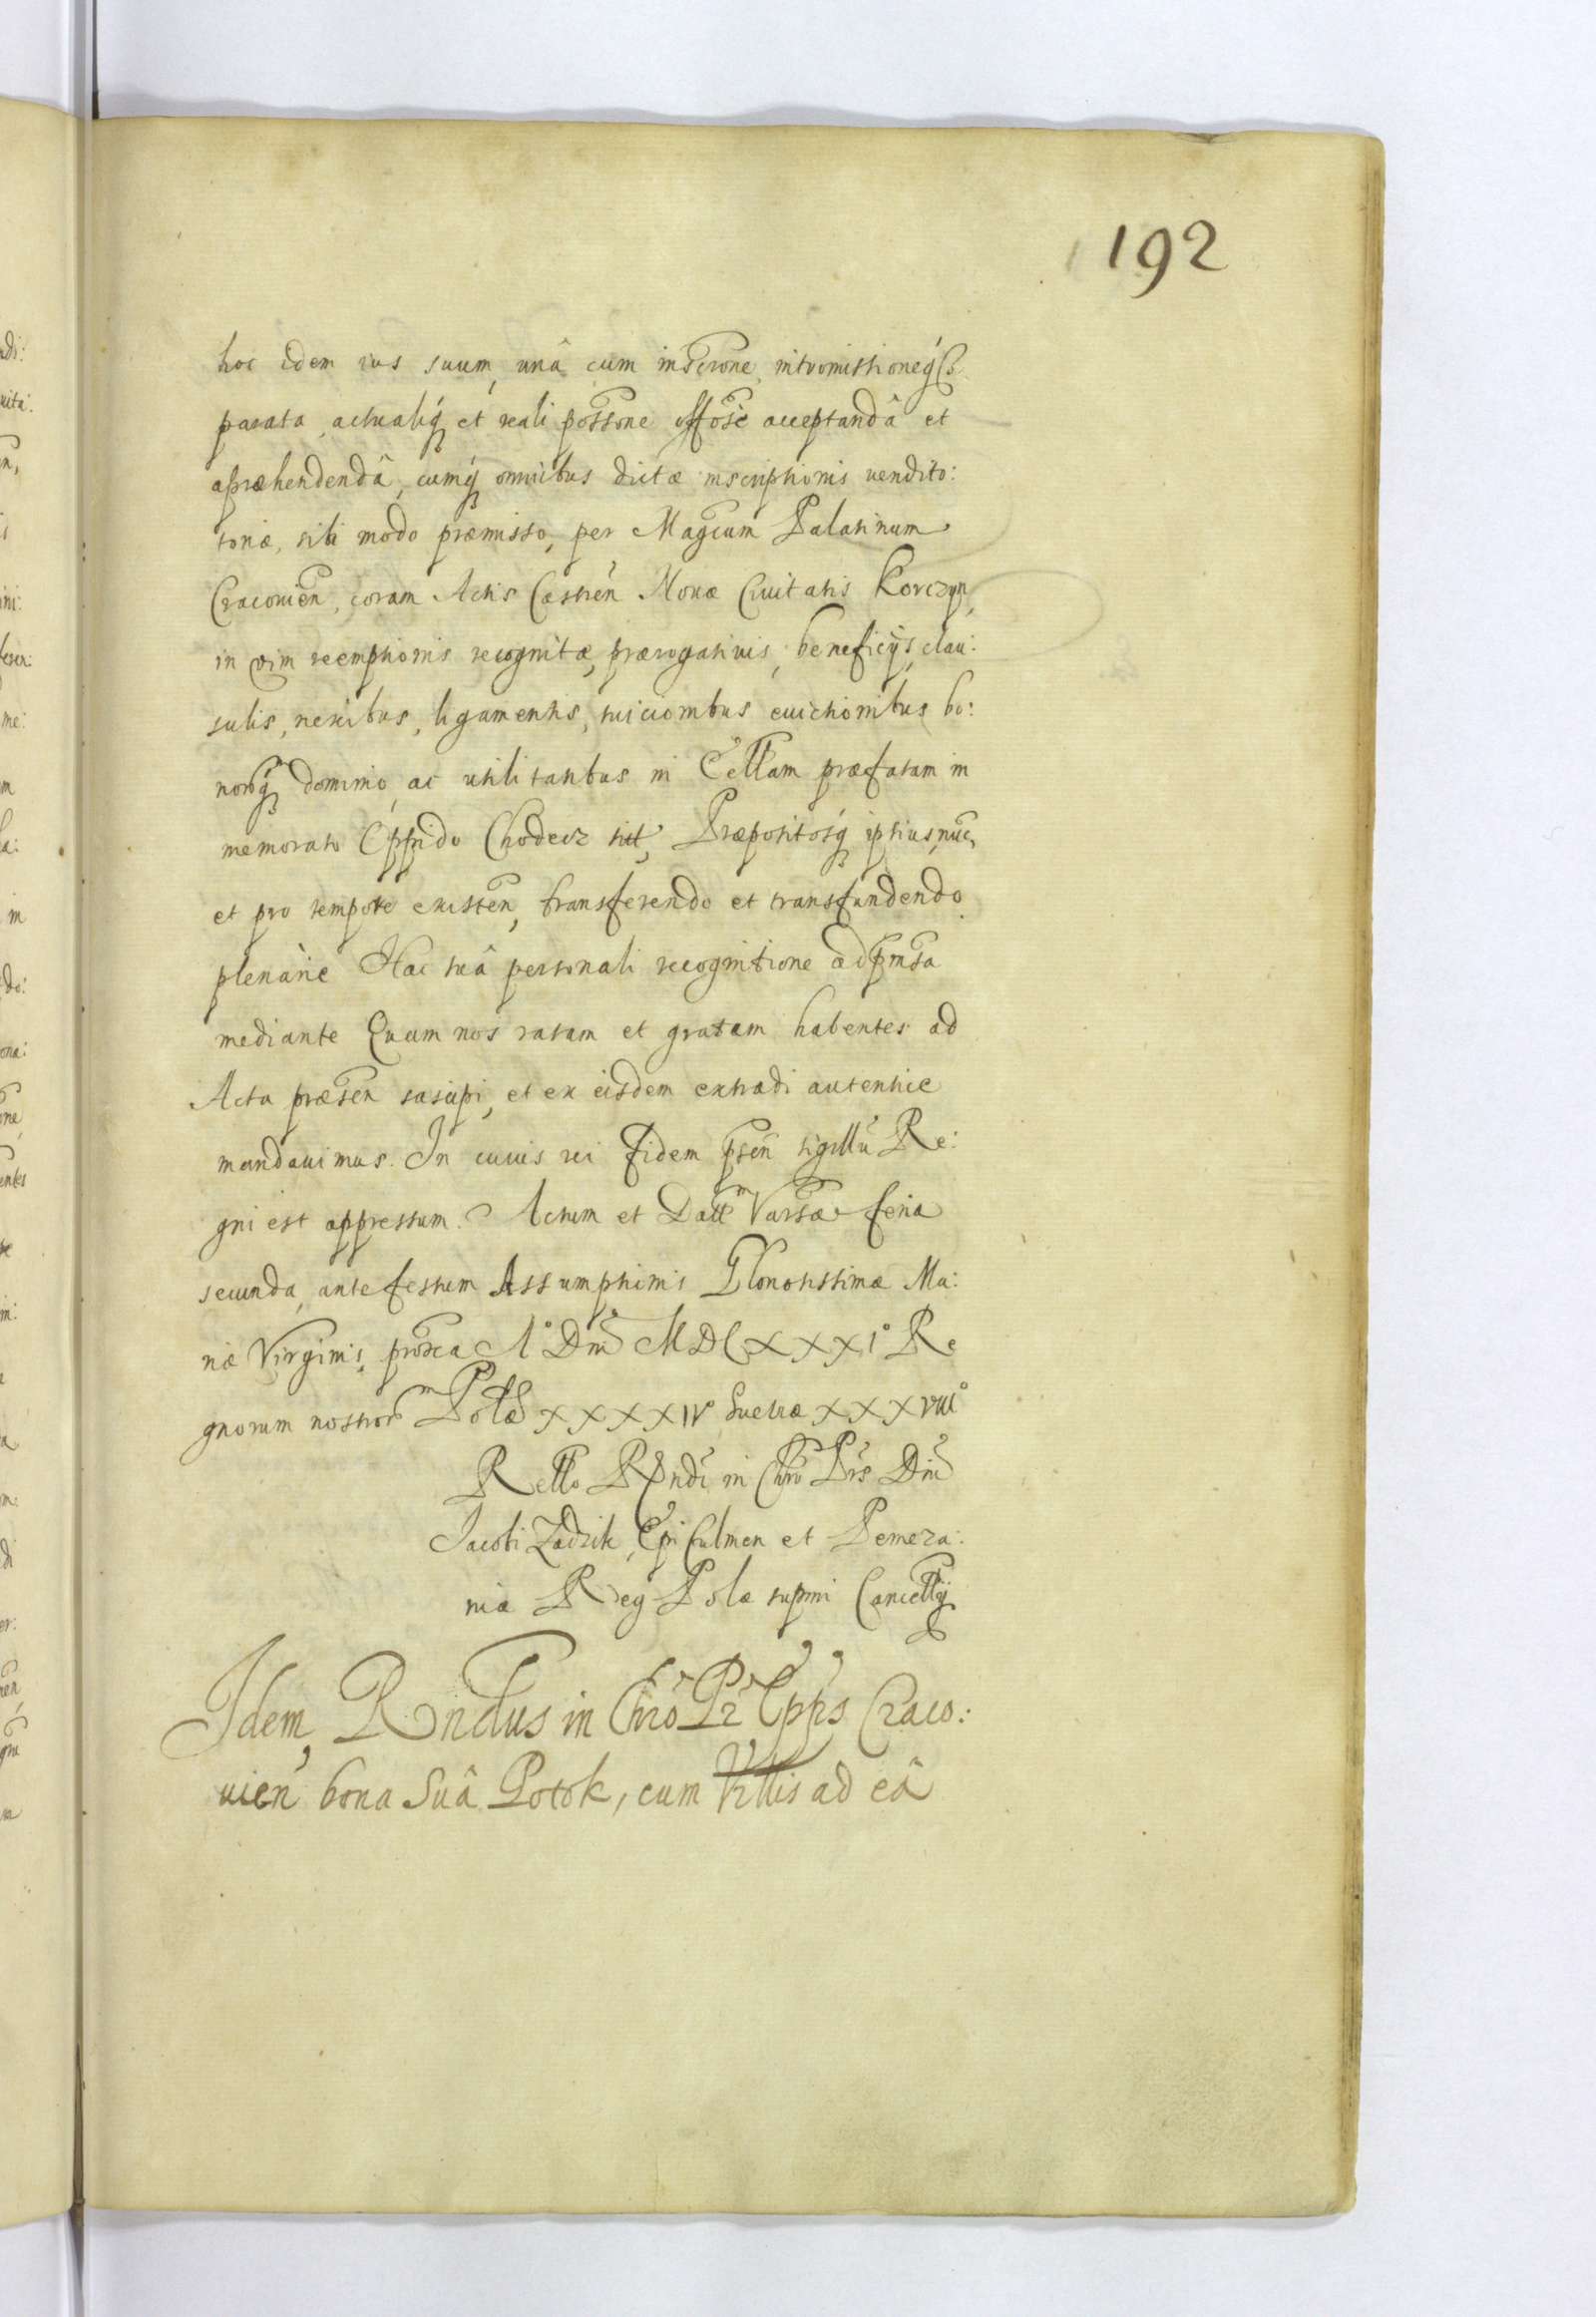 192
hoc idem ius suum, unâ cum inscrōne, intromissioneq́
pacata, actualiq́ et reali possōne offōse acceptandâ et
apræhendendâ, cumq́ omnibus dictæ inscriptionis vendito:
toriæ, sibi modo præmisso, per Magcum Palatinum
Cracouien̄, coram Actis Castren̄ Nouæ Ciuitatis Korczyn,
in vim reemptionis recognitæ, prærogatiuis, beneficijs, clau:
sulis, nexibus, ligamentis, tuicionibus euictionibus bo:
norq́ dominio, ac utilitatibus in Eccllam præfatam in
memorato Oppido Chodecz sitt, Præpositosq́ ipsius, nunc
et pro tempore existen̄, transferendo et transfundendo
plenarie Hac suâ personali recognitione ad pmssa
mediante Quam nos ratam et gratam habentes ad
Acta præsen̄ suscipi, et ex eisdem extradi autentice
mandauimus. In cuius rei fidem psen̄ sigillū Re:
gni est appressum. Actum et Datt Varsæ feria
secunda, ante festum Assumptionis Gloriosissimæ Ma:
riæ Virginis, proxca A° Dni MDCXXXI° Re
gnorum nostror Polæ XXXXIV Suetiæ XXXVIII°
Rello Rndi in Chro Pris Dni
Jacobi Zadzik, Epi Culmen et Pomeza:
niæ Reg Polæ supmi Cancellrij
Idem, Rndus in Chro Pr Epps Craco:
uien̄ bona Suâ Potok, cum Villis ad eâ